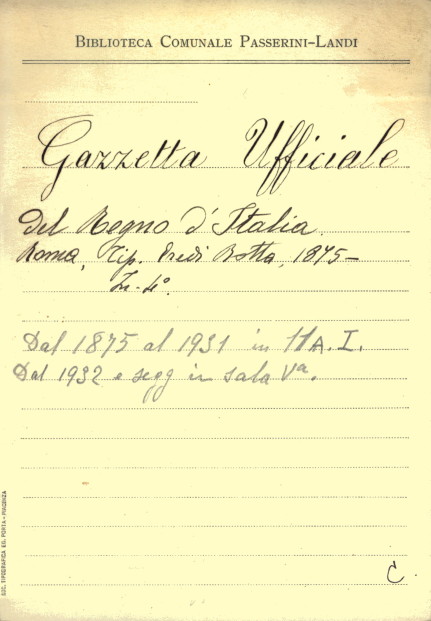 BIBLIOTECA COMUNALE PASSERINI-LANDI
Gazzetta Ufficiale
del Regno d'Italia.
Roma, Tip. Eredi Botta, 1875-
In-4°.
Dal 1875 al 1931 in 11 A. I.
Dal 1932 e segg in sala Va.
C.
SOC. TIPOGRAFICA ED. PORTA - PIACENZA